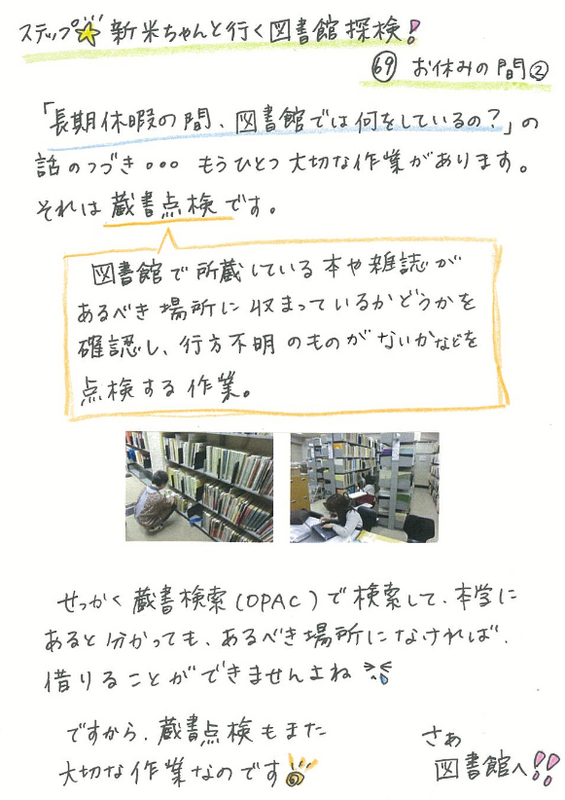 ステップ 新米ちゃんと行く図書館探検!
69 お休みの間②
「長期休暇の間、図書館では何をしているの?」の
話のつづき... もうひとつ大切な作業があります。
それは蔵書点検です。
図書館で所蔵している本や雑誌が
あるべき場所に収まっているかどうかを
確認し、行方不明のものがないかなどを
点検する作業。
せっかく蔵書検索(OPAC)で検索して、本学に
あると分かっても、あるべき場所になければ、
借りることができませんよね
ですから、蔵書点検もまた
大切な作業なのです
さあ
図書館へ!!